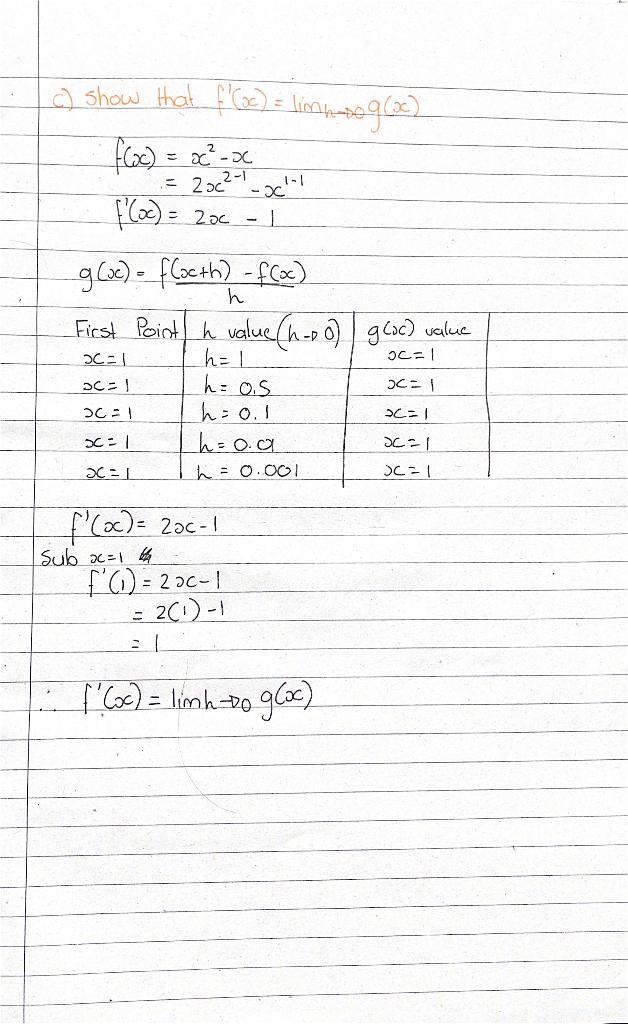 c) Show that f'(x) = lim h→0 g(x)
f(x) = x² - x
= 2x²⁻¹ - x¹⁻¹
f'(x) = 2x - 1
g(x) = f(x+h) - f(x)
h
First Point h value (h→0) g(x) value
x=1 h=1 x=1
x=1 h=0.5 x=1
x=1 h=0.1 x=1
x=1 h=0.01 x=1
x=1 h=0.001 x=1
f'(x) = 2x-1
Sub x=1
f'(1) = 2x-1
= 2(1)-1
= 1
∴ f'(x) = lim h→0 g(x)